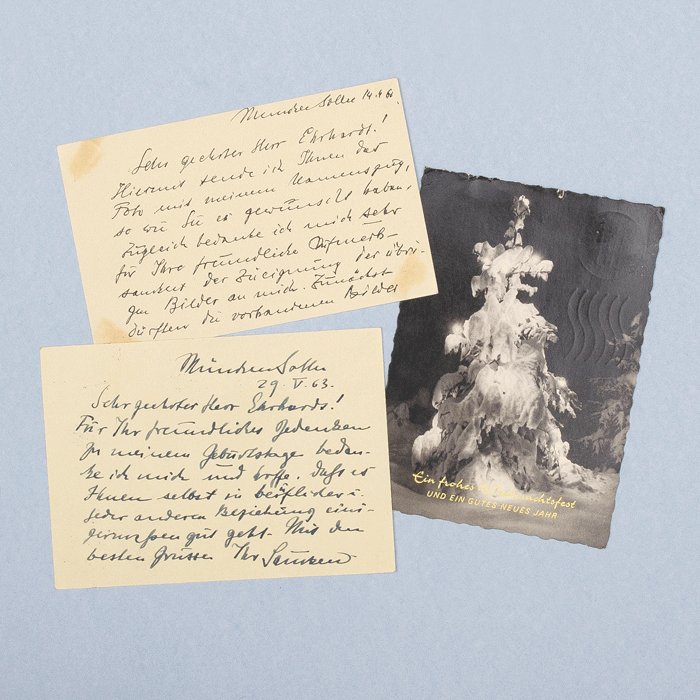 München Solln 14.4.60.
Sehr geehrter Herr Ehrhardt!
Hiermit sende ich Ihnen das
Foto mit meinem Namenszug,
so wie Sie es gewünscht haben,
zugleich bedanke ich mich sehr
für Ihre freundliche Aufmerk-
samkeit der Zueignung der übri-
gen Bilder an mich. Zunächst
dürften die vorhandenen Bilder
München Solln
29. V. 63.
Sehr geehrter Herr Ehrhardt!
Für Ihr freundliches Gedenken
zu meinem Geburtstage bedan-
ke ich mich und hoffe, daß es
Ihnen selbst in beruflicher u.
jeder anderen Beziehung eini-
germaßen gut geht. Mit den
besten Grüssen Ihr
Ein frohes Weihnachtsfest
UND EIN GUTES NEUES JAHR